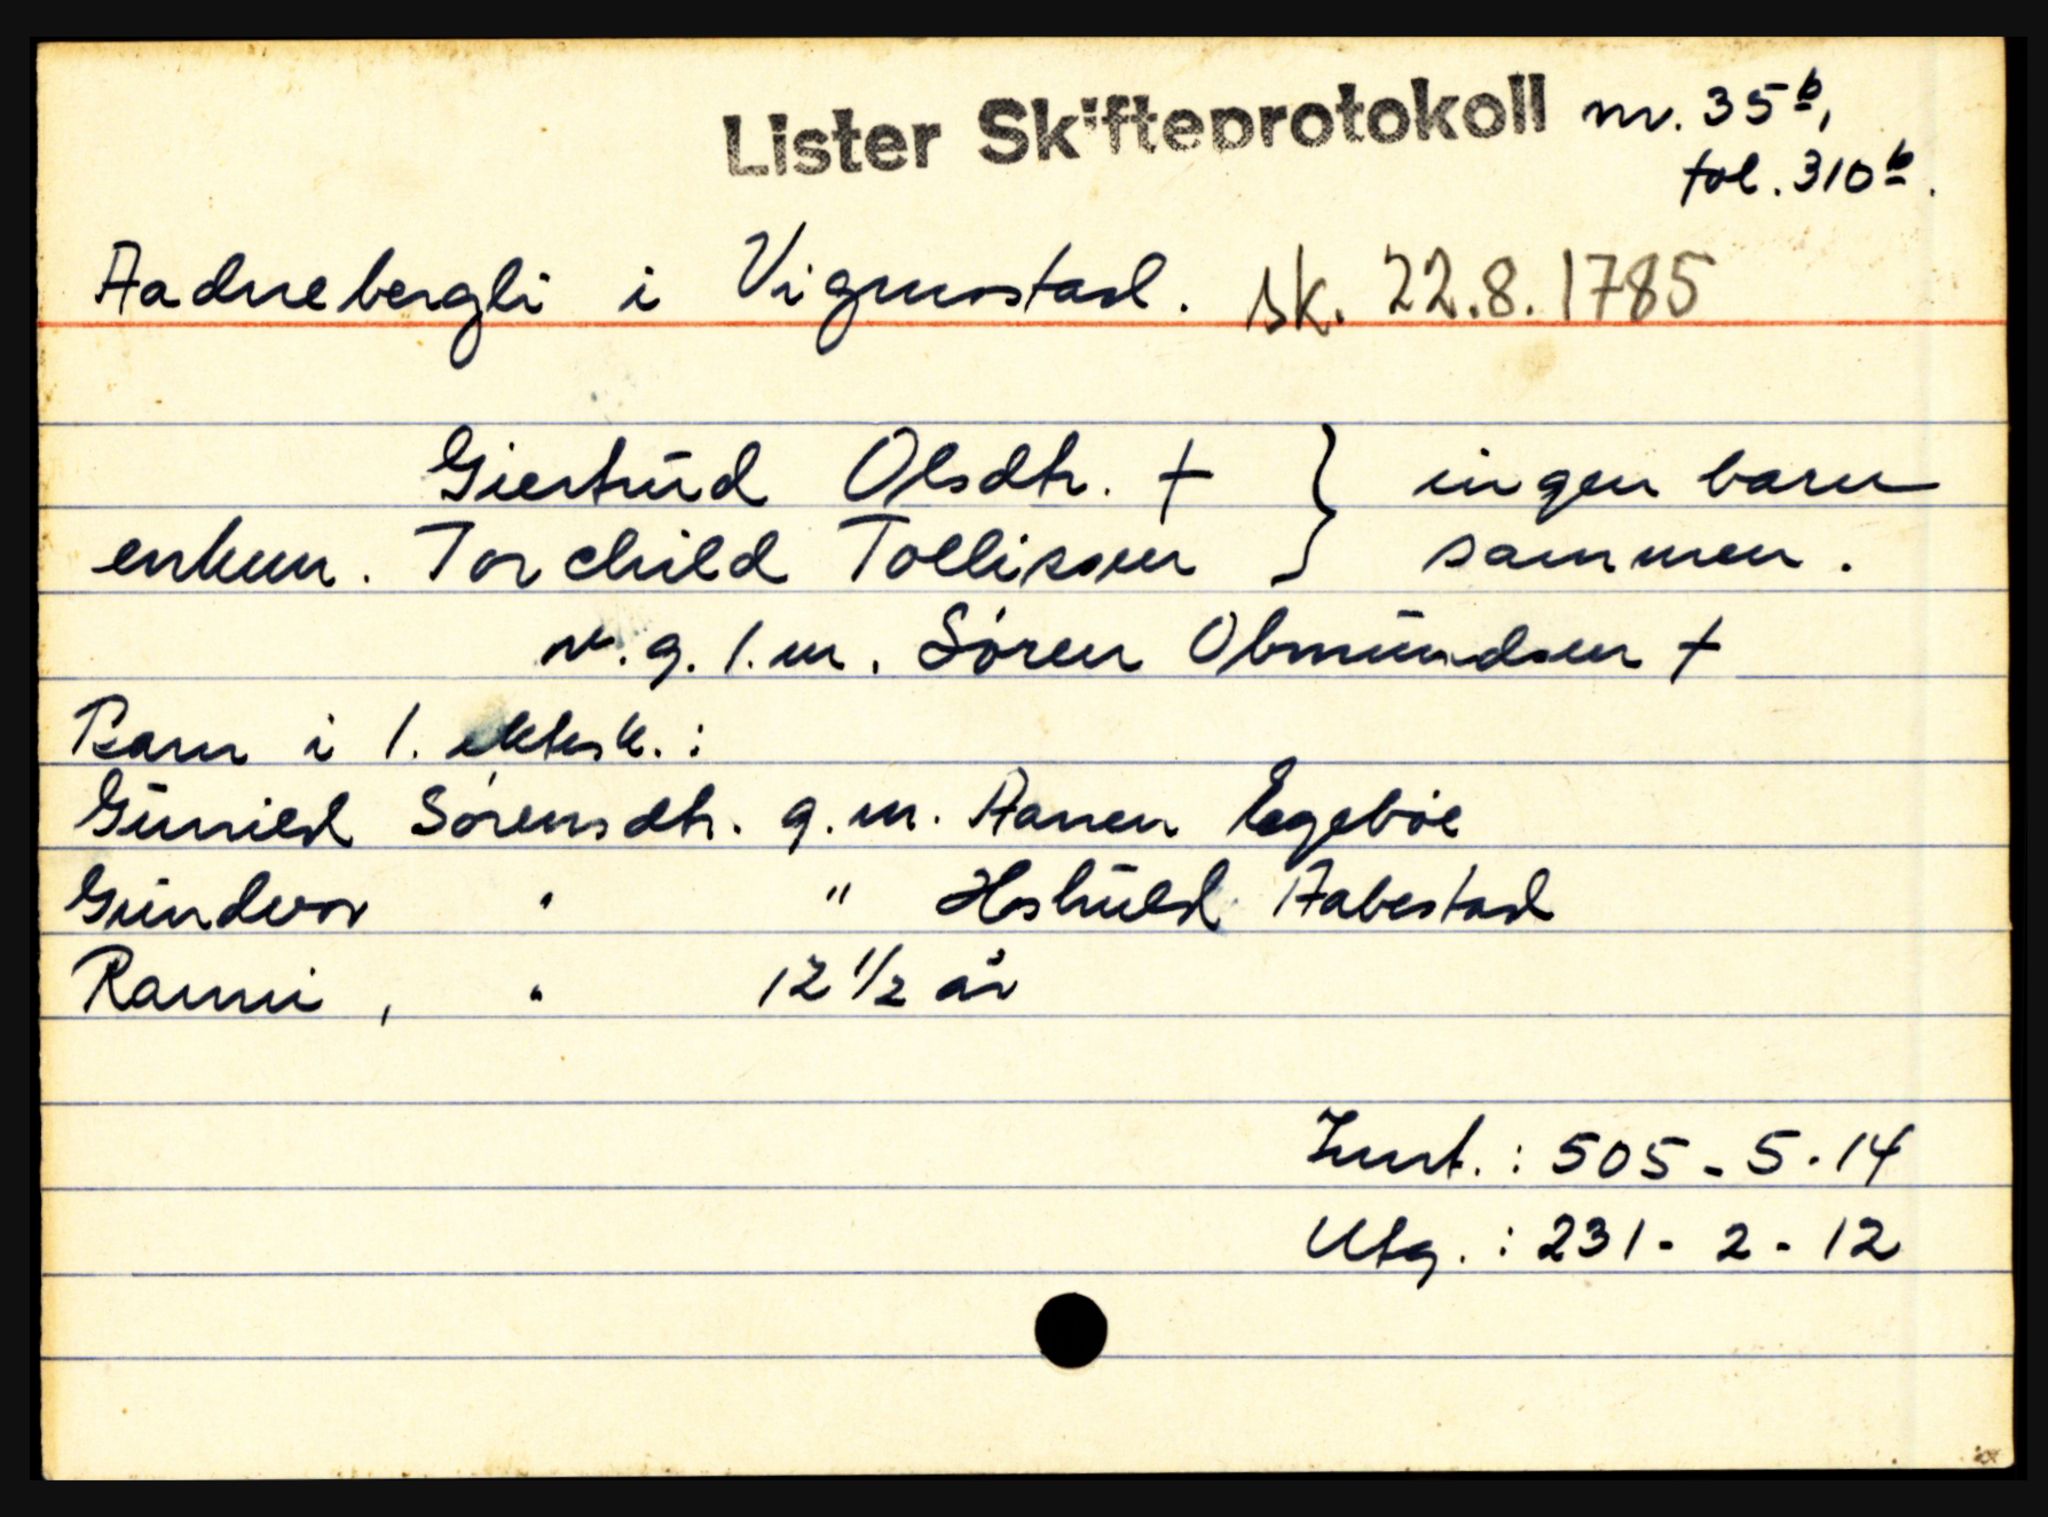 Lister Skifteprotokoll nr. 35b,
fol. 310b.
Aadnebergli i Vigmostad. sk. 22.8.1785
Giertrud Olsdtr. † } ingen barn
enkem. Torchild Tollissen } sammen.
v. g. 1. m. Søren Obmundsen †
Barn i 1. ektesk. :
Gunild Sørensdtr. g. m. Aanen Eegebøe
Gundvor " " Hoskuld Aabestad
Ranni , " 12 1/2 år
Innt. : 505 - 5 - 14
Utg. : 231 - 2 - 12